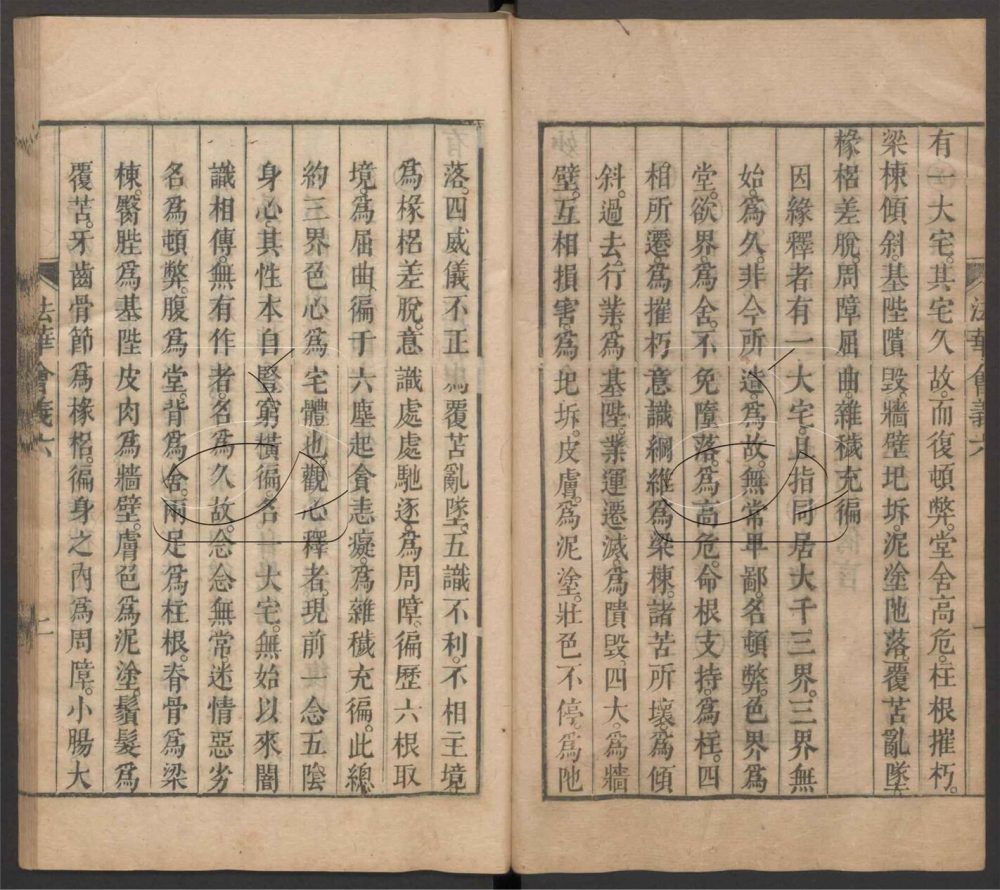 有一大宅。其宅久故。而復頓弊。堂舍高危。柱根摧朽。
梁棟傾斜。基陛隤毀。牆壁圯坼。泥塗阤落。覆苫亂墜。
椽梠差脫。周障屈曲。雜穢充徧
因緣釋者。有一大宅。且指同居大千三界。三界無
始。爲久。非今所造。爲故。無常卑鄙。名頓弊。色界爲
堂。欲界。爲舍。不免墮落。爲高危。命根支持。爲柱。四
相所遷。爲摧朽。意識綱維。爲梁棟。諸苦所壞。爲傾
斜。過去行業。爲基陛。業運遷滅。爲隤毀。四大。爲牆
壁。互相損害。爲圯坼。皮膚。爲泥塗。壯色不停。爲阤
法華會義六
一
落。四威儀不正。爲覆苫亂墜。五識不利。不相主境。
爲椽梠差脫。意識處處馳逐。爲周障。徧歷六根取
境。爲屈曲。徧于六塵起貪恚癡。爲雜穢充徧。此總
約三界色心。爲宅體也。觀心釋者。現前一念五陰
身心。其性本自豎窮橫徧。名大宅。無始以來闇
識相傳。無有作者。名爲久故。念念無常迷情惡劣
名爲頓弊。腹爲堂。背爲舍。兩足爲柱根。脊骨爲梁
棟。臀䏶爲基陛。皮肉爲牆壁。膚色爲泥塗。鬚髮爲
覆苫。牙齒骨節爲椽梠。徧身之內爲周障。小腸大
法華會義六
二